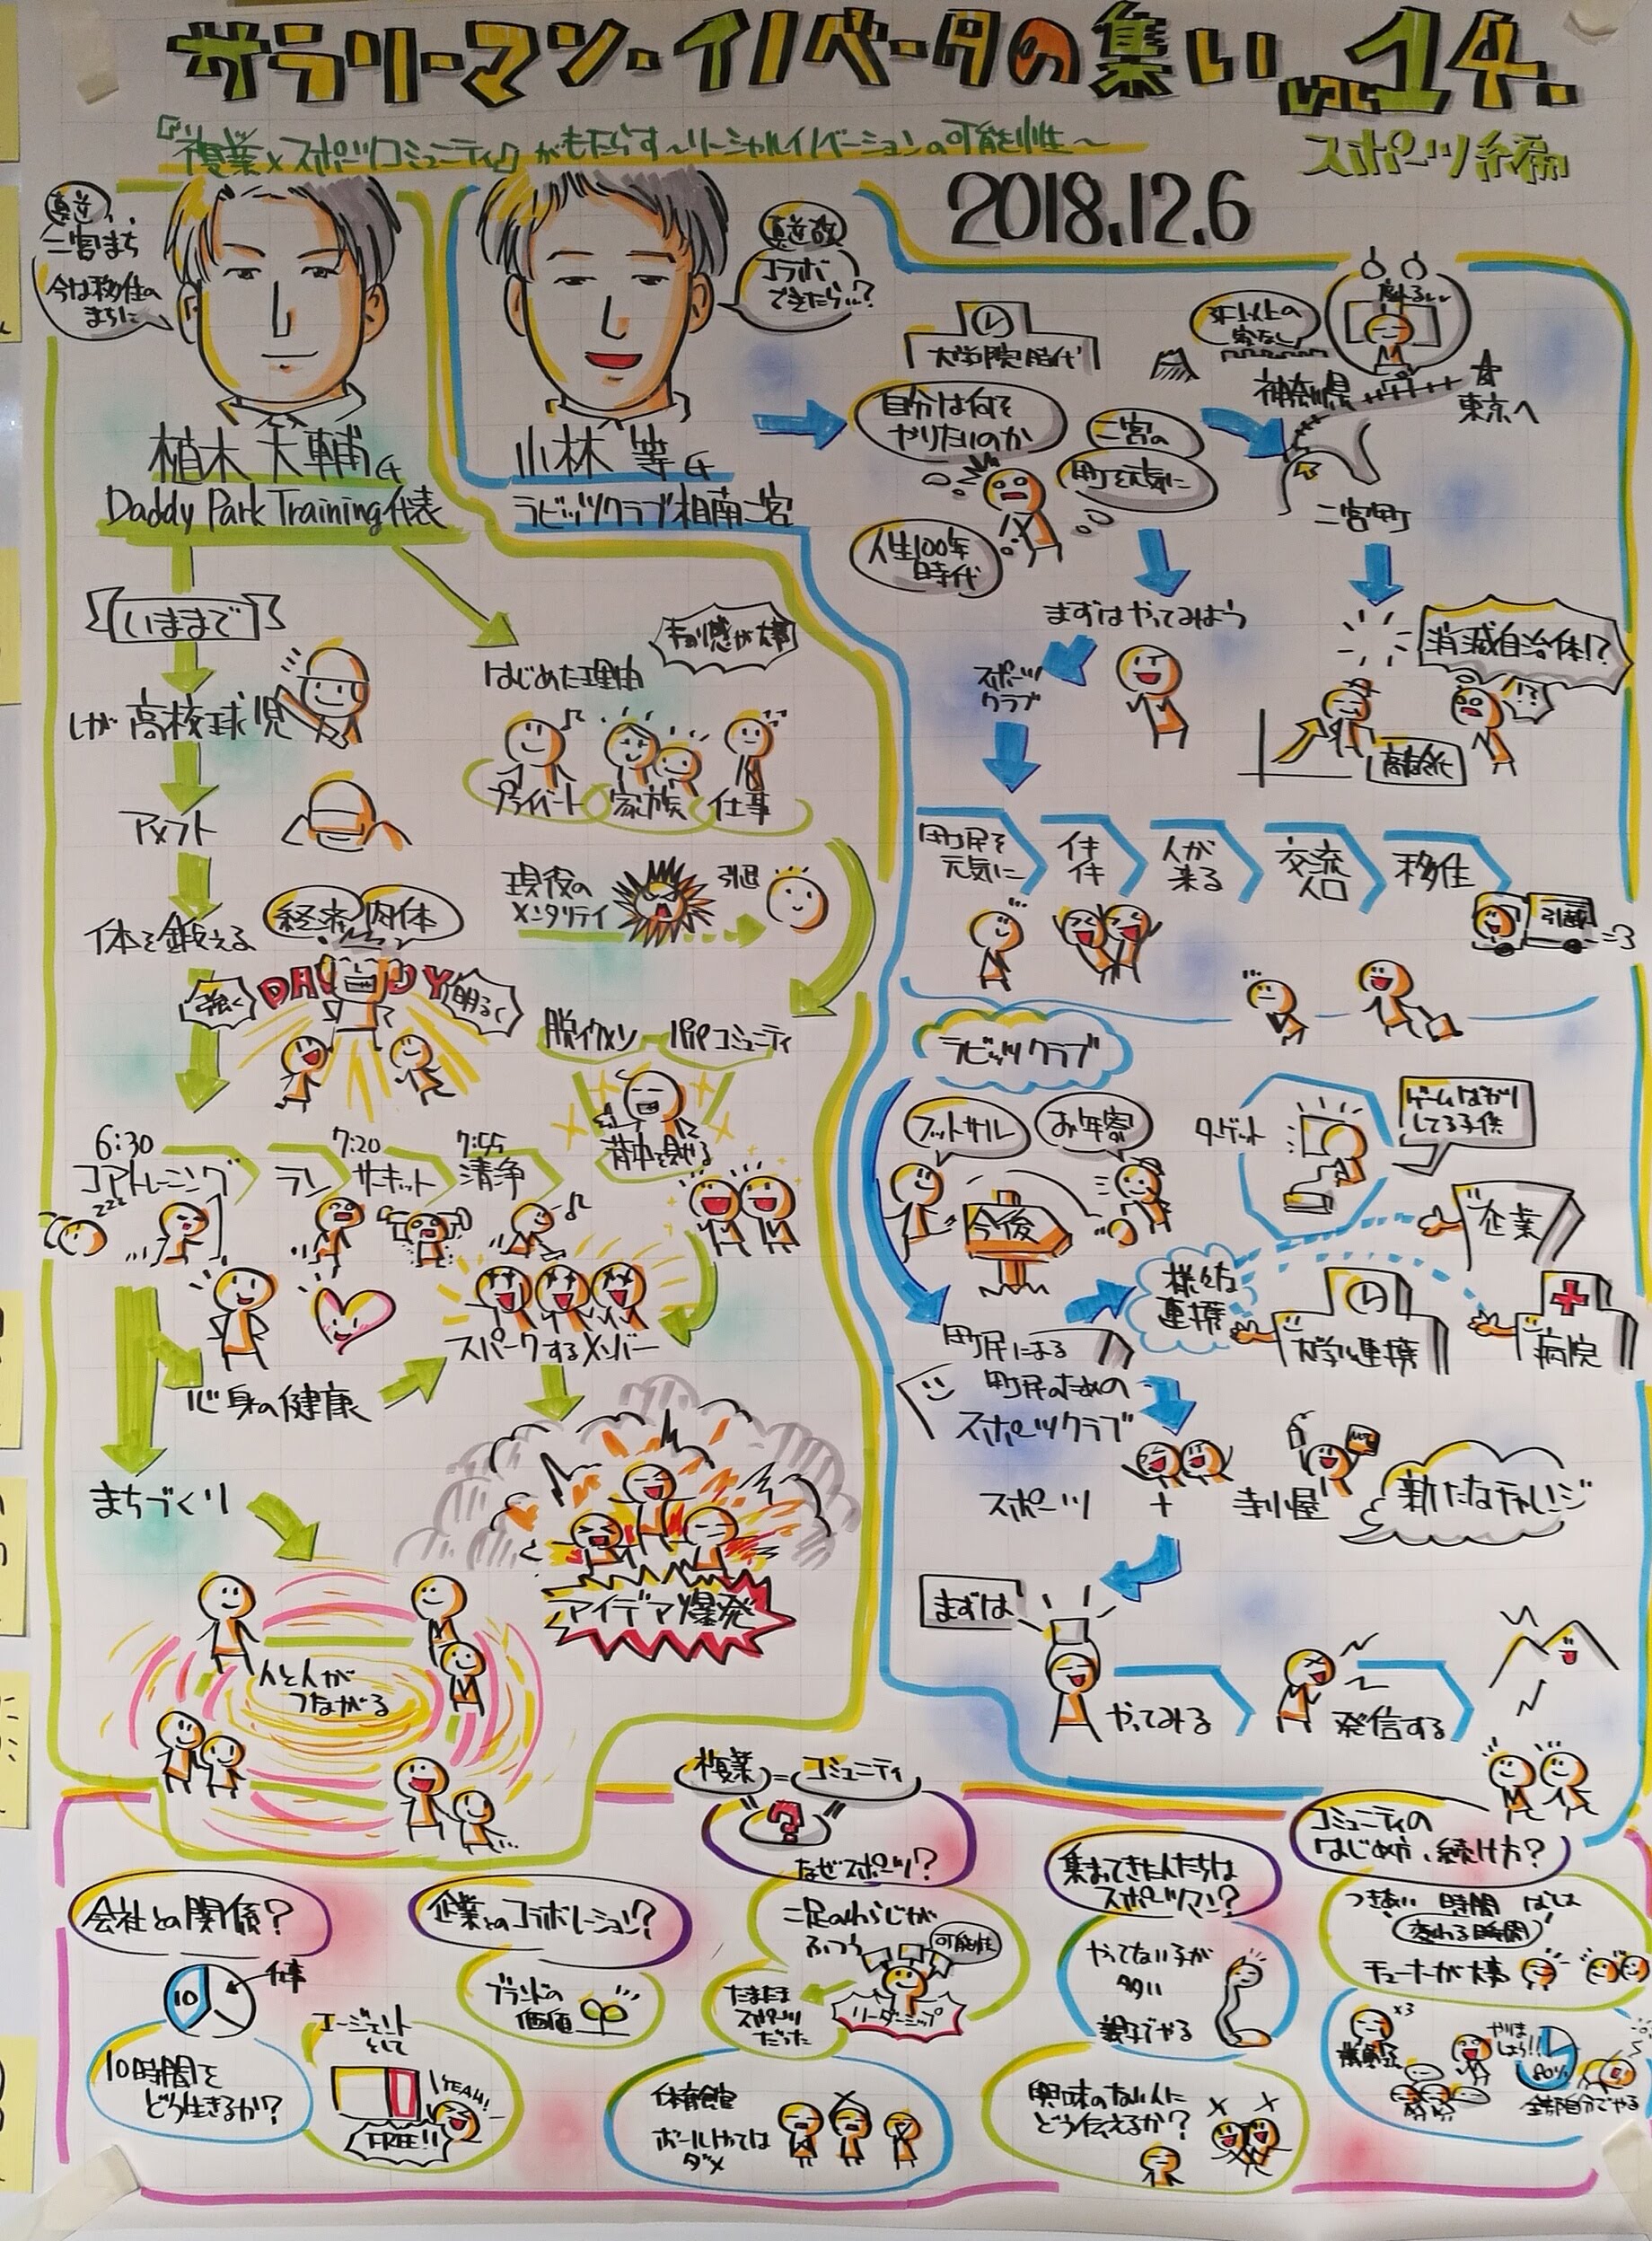 サラリーマン・イノベータの集い vol.14.
『複業×スポーツコミュニティ』がもたらす〜ソーシャルイノベーションの可能性〜
スポーツ編
2018.12.6
二宮まち
今は移住の
まちに
植木大輔氏
Daddy Park Training代表
コラボ
できたら…?
小林 等氏
ラビッツクラブ湘南二宮
いままで
高校球児
アメフト
体を鍛える
経済
肉体
強く
DADDY
明るく
6:30
コアトレーニング
ラン
7:20
サーキット
7:55
清浄
zzz
心身の健康
スパークするメンバー
まちづくり
人と人が
つながる
アイデア爆発
はじめた理由
プライベート
家族
仕事
現役の
メンタリティ
引退
脱イクメン
パパコミュニティ
背中を見せる
大学院時代
自分は何を
やりたいのか
二宮の
町を元気に
人生100年
時代
神奈川県
東京へ
二宮町
まずはやってみよう
スポーツ
クラブ
消滅自治体!?
高齢化
町民を
元気に
イキ
イキ
人が
来る
交流
人口
移住
引越
ラビッツクラブ
フットサル
お年寄り
今後
ターゲット
ゲームばかり
してる子供
企業
様々な
連携
大学連携
病院
町民による
町民のための
スポーツクラブ
スポーツ
+
寺小屋
新たなチャレンジ
まずは
やってみる
発信する
複業=コミュニティ
?
なぜスポーツ?
会社との関係?
10
仕事
10時間を
どう生きるか?
エージェント
として
YEAH!
FREE!!
企業とのコラボレーション?
ブランドの
価値
二足のわらじが
ふつう
可能性
たまたま
スポーツ
だった
リーダーシップ
体育館
ボールけては
ダメ
集まってきた人たちは
スポーツマン?
やってない子が
多い
親子でやる
興味のない人に
どう伝えるか?
コミュニティの
はじめ方、続け方?
変わる時間
チューナーが大事
x3
やりま
しょう!!
80%
全部自分でやる